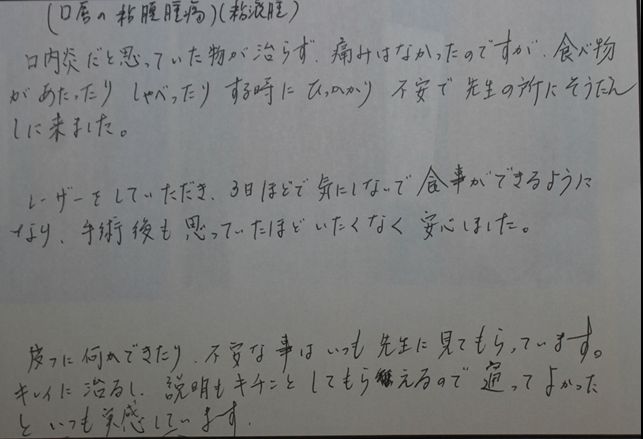 (口唇の粘膜腫瘤)(粘液腫)
口内炎だと思っていた物が治らず、痛みはなかったのですが、食べ物
があたったり しゃべったり する時に ひっかかり 不安で 先生の所にそうだん
しに来ました。
レーザーをしていただき、3日ほどで気にしないで食事ができるように
なり、手術後も思っていたほどいたくなく 安心しました。
皮フに何かできたり、不安な事はいつも先生に見てもらっています。
キレイに治るし、説明もキチンとしてもらえるので 通ってよかった
といつも実感しています。